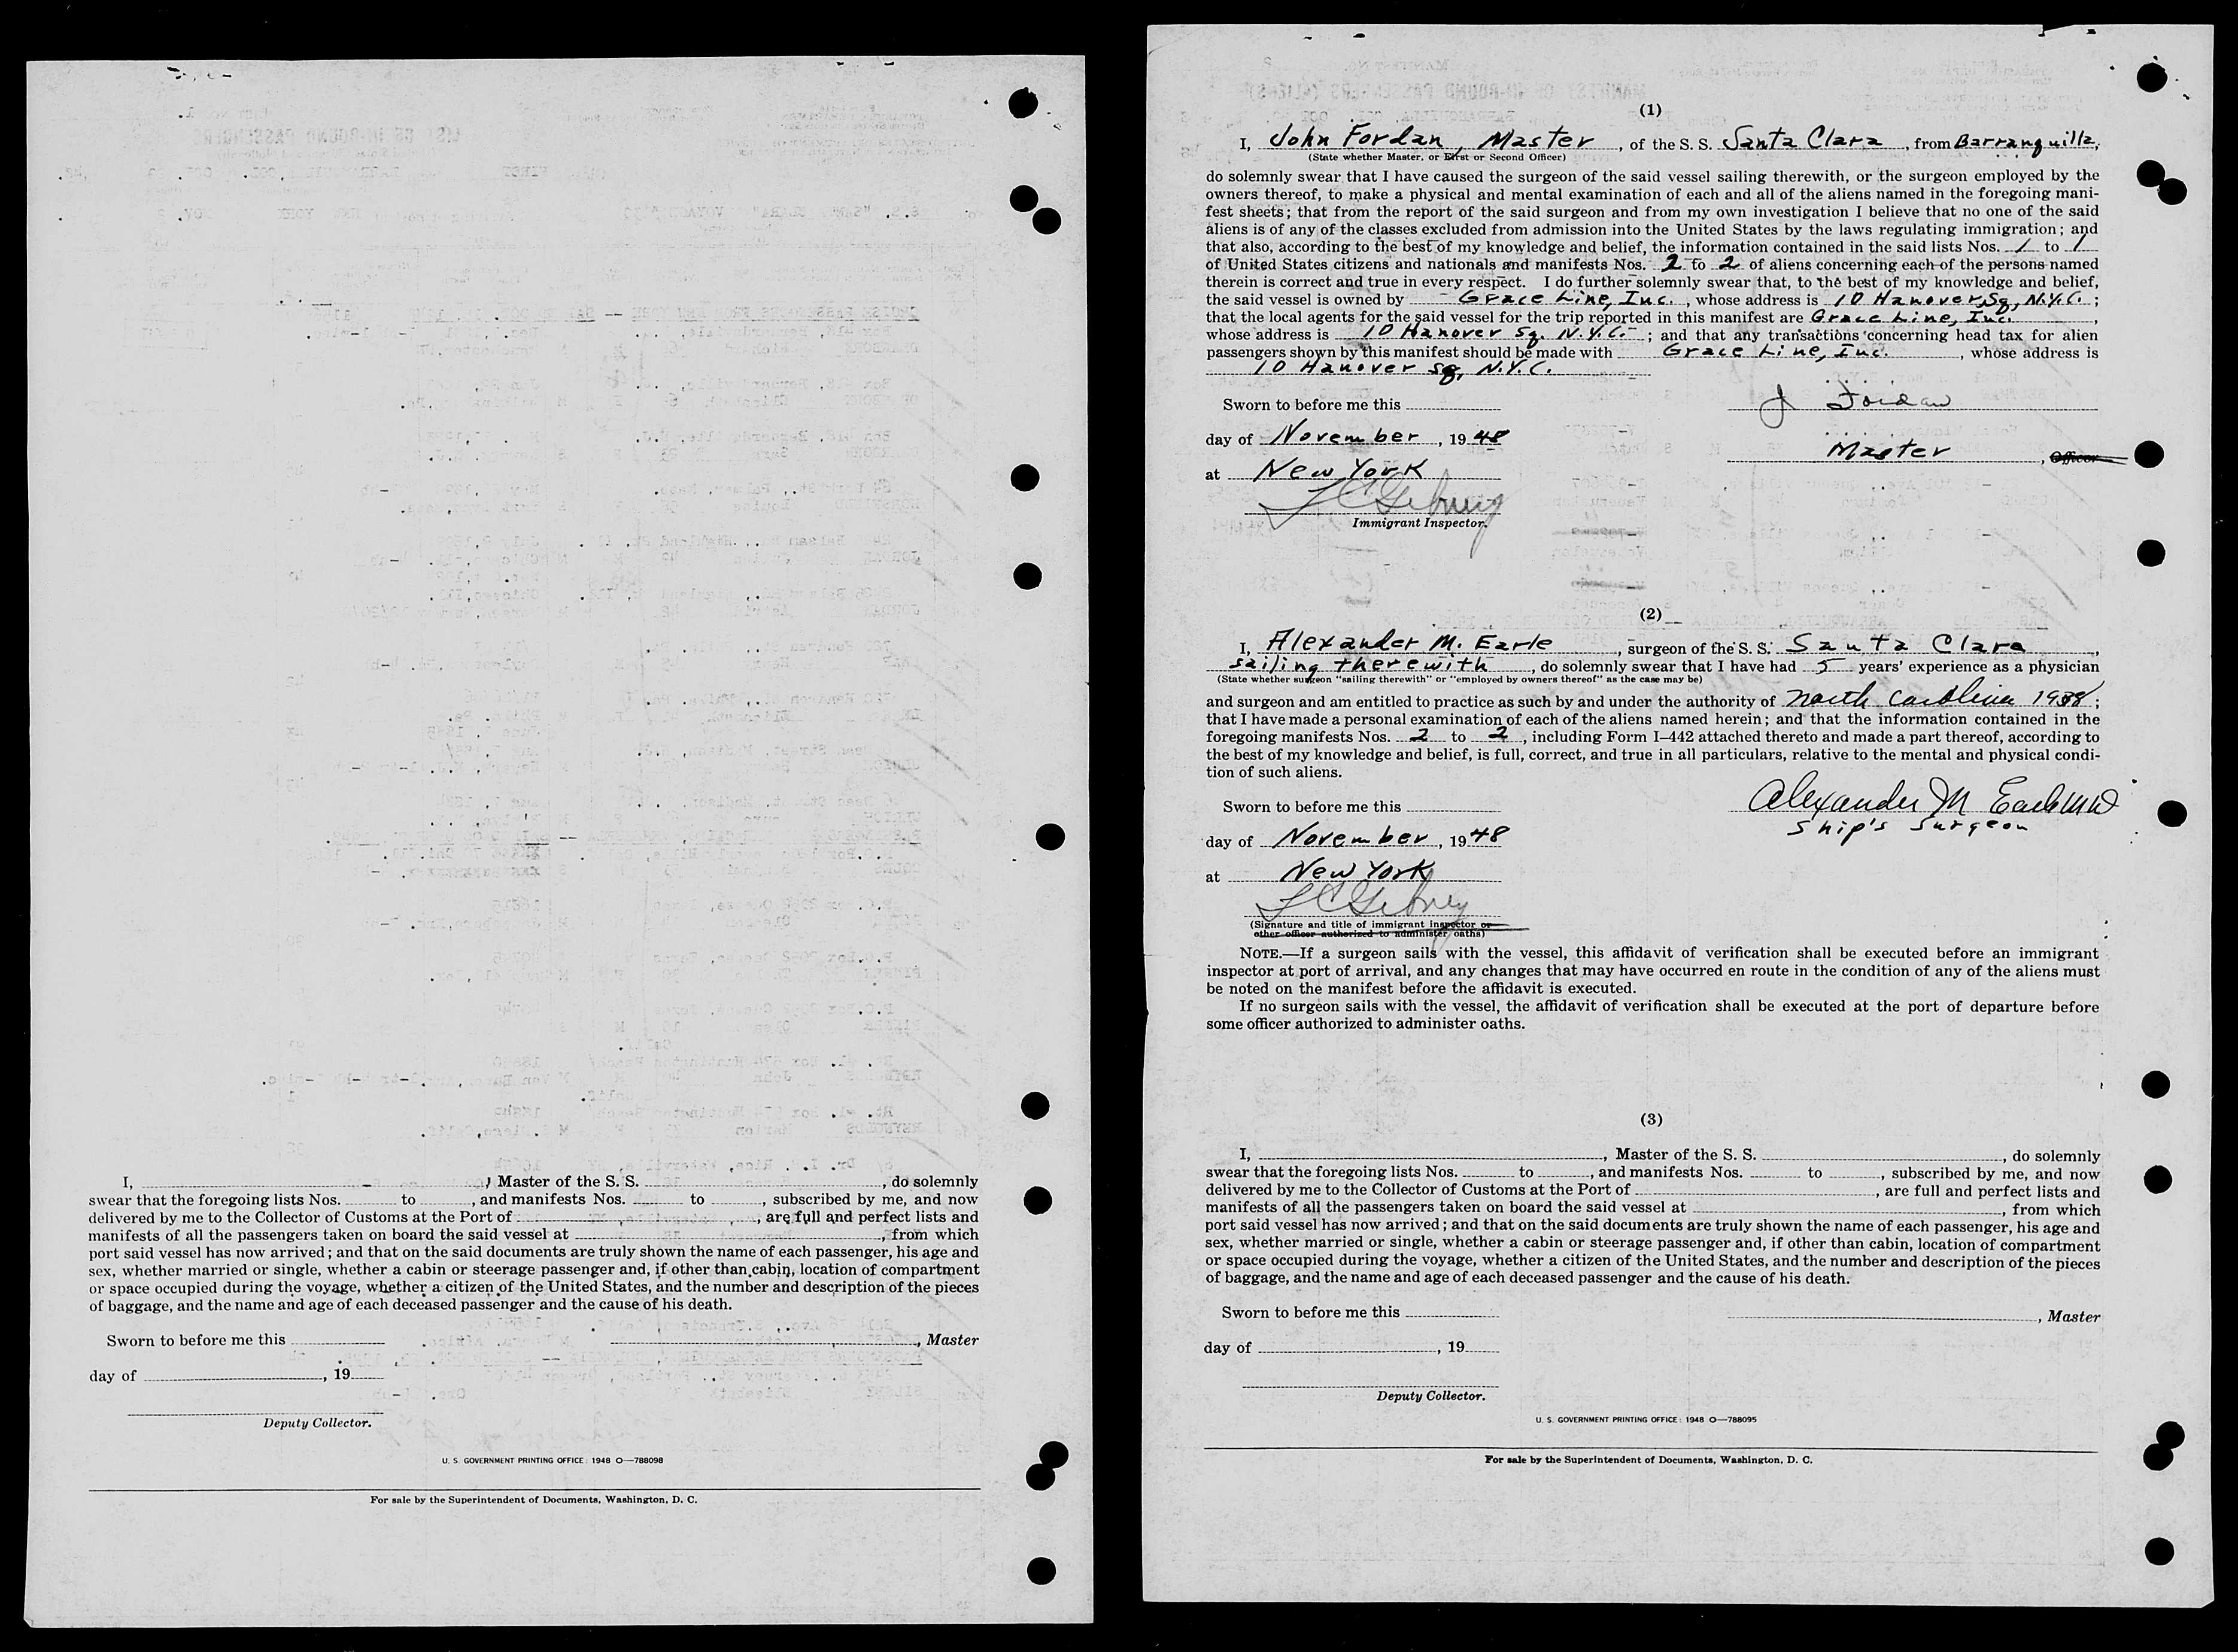 I, , Master of the S. S. , do solemnly
swear that the foregoing lists Nos. to , and manifests Nos. to , subscribed by me, and now
delivered by me to the Collector of Customs at the Port of , are full and perfect lists and
manifests of all the passengers taken on board the said vessel at , from which
port said vessel has now arrived; and that on the said documents are truly shown the name of each passenger, his age and
sex, whether married or single, whether a cabin or steerage passenger and, if other than cabin, location of compartment
or space occupied during the voyage, whether a citizen of the United States, and the number and description of the pieces
of baggage, and the name and age of each deceased passenger and the cause of his death.
Sworn to before me this
, Master
day of , 19
Deputy Collector.
U. S. GOVERNMENT PRINTING OFFICE : 1948 O—788098
For sale by the Superintendent of Documents, Washington, D. C.
(1)
I, John Fordan, Master, of the S. S. Santa Clara, from Barranquilla,
(State whether Master, or First or Second Officer)
do solemnly swear that I have caused the surgeon of the said vessel sailing therewith, or the surgeon employed by the
owners thereof, to make a physical and mental examination of each and all of the aliens named in the foregoing mani-
fest sheets; that from the report of the said surgeon and from my own investigation I believe that no one of the said
aliens is of any of the classes excluded from admission into the United States by the laws regulating immigration; and
that also, according to the best of my knowledge and belief, the information contained in the said lists Nos. 1 to 1
of United States citizens and nationals and manifests Nos. 2 to 2 of aliens concerning each of the persons named
therein is correct and true in every respect. I do further solemnly swear that, to the best of my knowledge and belief,
the said vessel is owned by Grace Line, Inc., whose address is 10 Hanover Sq, N.Y.C. ;
that the local agents for the said vessel for the trip reported in this manifest are Grace Line, Inc. ,
whose address is 10 Hanover Sq. N.Y.C. ; and that any transactions concerning head tax for alien
passengers shown by this manifest should be made with Grace Line, Inc. , whose address is
10 Hanover Sq, N.Y.C.
Sworn to before me this
J Fordan
day of November, 1948
Master, Officer
at New York
Immigrant Inspector.
(2)
I, Alexander M. Earle, surgeon of the S. S. Santa Clara,
sailing therewith, do solemnly swear that I have had 5 years' experience as a physician
(State whether surgeon "sailing therewith" or "employed by owners thereof" as the case may be)
and surgeon and am entitled to practice as such by and under the authority of North Carolina 1938 ;
that I have made a personal examination of each of the aliens named herein; and that the information contained in the
foregoing manifests Nos. 2 to 2, including Form I-442 attached thereto and made a part thereof, according to
the best of my knowledge and belief, is full, correct, and true in all particulars, relative to the mental and physical condi-
tion of such aliens.
Alexander M Earle MD
Sworn to before me this
Ship's Surgeon
day of November, 1948
at New York
(Signature and title of immigrant inspector or
other officer authorized to administer oaths)
NOTE.—If a surgeon sails with the vessel, this affidavit of verification shall be executed before an immigrant
inspector at port of arrival, and any changes that may have occurred en route in the condition of any of the aliens must
be noted on the manifest before the affidavit is executed.
If no surgeon sails with the vessel, the affidavit of verification shall be executed at the port of departure before
some officer authorized to administer oaths.
(3)
I, , Master of the S. S. , do solemnly
swear that the foregoing lists Nos. to , and manifests Nos. to , subscribed by me, and now
delivered by me to the Collector of Customs at the Port of , are full and perfect lists and
manifests of all the passengers taken on board the said vessel at , from which
port said vessel has now arrived; and that on the said documents are truly shown the name of each passenger, his age and
sex, whether married or single, whether a cabin or steerage passenger and, if other than cabin, location of compartment
or space occupied during the voyage, whether a citizen of the United States, and the number and description of the pieces
of baggage, and the name and age of each deceased passenger and the cause of his death.
Sworn to before me this
, Master
day of , 19
Deputy Collector.
U. S. GOVERNMENT PRINTING OFFICE : 1948 O—788095
For sale by the Superintendent of Documents, Washington, D. C.